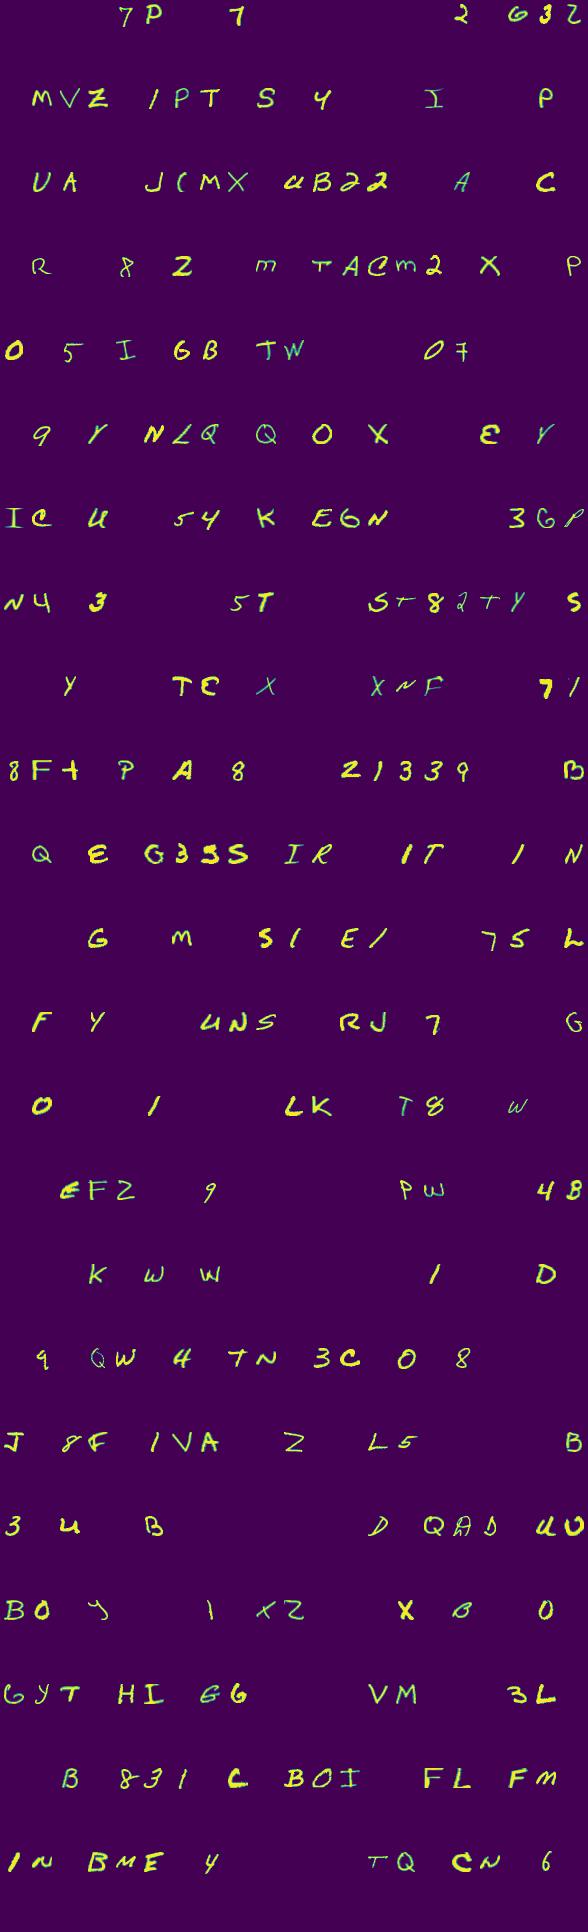 7P 7 2 G3Z
MVZ 1PT S 4 I P
UA JCMX UB22 A C
R 8 Z M TACM2 X P
0 5 I GB TW 07
9 Y NLQ Q O X E Y
IC U 54 K EGN 3GP
N4 3 5T ST82TY S
Y TE X XNF 71
8F+ P A 8 21339 B
Q E G33S IR 1T 1 N
G M S1 E1 75 L
F Y UNS RJ 7 G
0 1 LK T8 W
EFZ 9 PW 4B
K W W 1 D
9 QW 4 TN 3C 0 8
J 8F 1VA Z L5 B
3 U B D QAD UU
B0 Y 1 XZ X B 0
GYT HI GG VM 3L
B 831 C BOI FL FM
1N BME 4 TQ CN 6